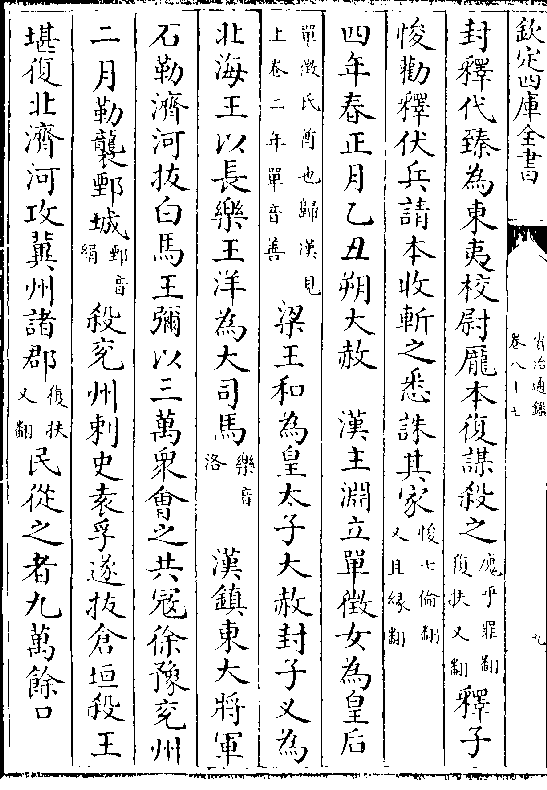 欽定四庫全書
資治通鑑
卷八十七
九
封釋代臻為東夷校尉龎本復謀殺之
厖乎罪翻
復扶又翻
釋子
悛勸釋伏兵請本收斬之悉誅其家
悛七倫翻
又且縁翻
四年春正月乙丑朔大赦 漢主淵立單徵女為皇后
單徵氐酋也歸漢見
上卷二年單音善
梁王和為皇太子大赦封子乂為
北海王以長樂王洋為大司馬
樂音
洛
漢鎮東大將軍
石勒濟河㧞白馬王彌以三萬衆會之共寇徐豫兗州
二月勒襲鄄城
鄄音
絹
殺兗州刺史袁孚遂㧞倉垣殺王
堪復北濟河攻冀州諸郡
復扶
又翻
民從之者九萬餘口